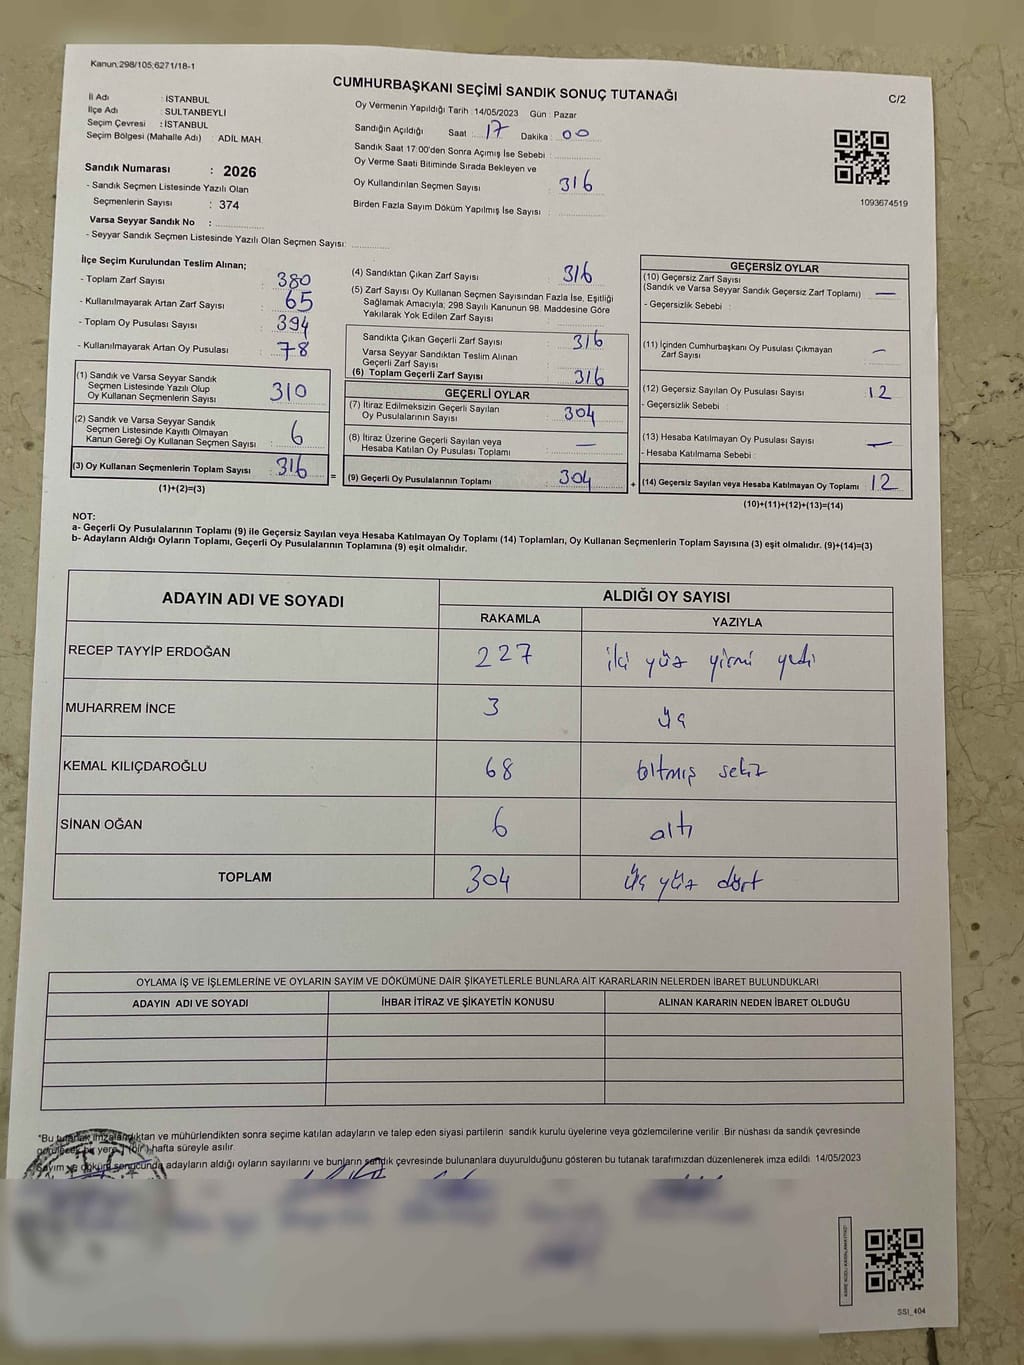 Kanun;298/105;6271/18-1
CUMHURBAŞKANI SEÇİMİ SANDIK SONUÇ TUTANAĞI
C/2
İl Adı : İSTANBUL
İlçe Adı : SULTANBEYLİ
Seçim Çevresi : İSTANBUL
Seçim Bölgesi (Mahalle Adı) : ADİL MAH.
Sandık Numarası : 2026
- Sandık Seçmen Listesinde Yazılı Olan
Seçmenlerin Sayısı : 374
Varsa Seyyar Sandık No :
- Seyyar Sandık Seçmen Listesinde Yazılı Olan Seçmen Sayısı:
Oy Vermenin Yapıldığı Tarih : 14/05/2023 Gün : Pazar
Sandığın Açıldığı Saat : 17 Dakika : 00
Sandık Saat 17:00'den Sonra Açımış İse Sebebi :
Oy Verme Saati Bitiminde Sırada Bekleyen ve
Oy Kullandırılan Seçmen Sayısı : 316
Birden Fazla Sayım Döküm Yapılmış İse Sayısı :
1093674519
İlçe Seçim Kurulundan Teslim Alınan;
- Toplam Zarf Sayısı : 380
- Kullanılmayarak Artan Zarf Sayısı : 65
- Toplam Oy Pusulası Sayısı : 394
- Kullanılmayarak Artan Oy Pusulası : 78
(1) Sandık ve Varsa Seyyar Sandık
Seçmen Listesinde Yazılı Olup
Oy Kullanan Seçmenlerin Sayısı : 310
(2) Sandık ve Varsa Seyyar Sandık
Seçmen Listesinde Kayıtlı Olmayan
Kanun Gereği Oy Kullanan Seçmen Sayısı : 6
(3) Oy Kullanan Seçmenlerin Toplam Sayısı : 316
(1)+(2)=(3)
=
(4) Sandıktan Çıkan Zarf Sayısı : 316
(5) Zarf Sayısı Oy Kullanan Seçmen Sayısından Fazla İse, Eşitliği
Sağlamak Amacıyla; 298 Sayılı Kanunun 98. Maddesine Göre
Yakılarak Yok Edilen Zarf Sayısı :
Sandıkta Çıkan Geçerli Zarf Sayısı : 316
Varsa Seyyar Sandıktan Teslim Alınan
Geçerli Zarf Sayısı :
(6) Toplam Geçerli Zarf Sayısı : 316
GEÇERLİ OYLAR
(7) İtiraz Edilmeksizin Geçerli Sayılan
Oy Pusulalarının Sayısı : 304
(8) İtiraz Üzerine Geçerli Sayılan veya
Hesaba Katılan Oy Pusulası Toplamı : —
(9) Geçerli Oy Pusulalarının Toplamı : 304
+
GEÇERSİZ OYLAR
(10) Geçersiz Zarf Sayısı
(Sandık ve Varsa Seyyar Sandık Geçersiz Zarf Toplamı) : —
- Geçersizlik Sebebi :
(11) İçinden Cumhurbaşkanı Oy Pusulası Çıkmayan
Zarf Sayısı : —
(12) Geçersiz Sayılan Oy Pusulası Sayısı : 12
- Geçersizlik Sebebi :
(13) Hesaba Katılmayan Oy Pusulası Sayısı : —
- Hesaba Katılmama Sebebi :
(14) Geçersiz Sayılan veya Hesaba Katılmayan Oy Toplamı : 12
(10)+(11)+(12)+(13)=(14)
NOT:
a- Geçerli Oy Pusulalarının Toplamı (9) ile Geçersiz Sayılan veya Hesaba Katılmayan Oy Toplamı (14) Toplamları, Oy Kullanan Seçmenlerin Toplam Sayısına (3) eşit olmalıdır. (9)+(14)=(3)
b- Adayların Aldığı Oyların Toplamı, Geçerli Oy Pusulalarının Toplamına (9) eşit olmalıdır.
ADAYIN ADI VE SOYADI ALDIĞI OY SAYISI
RAKAMLA YAZIYLA
RECEP TAYYİP ERDOĞAN 227 iki yüz yirmi yedi
MUHARREM İNCE 3 üç
KEMAL KILIÇDAROĞLU 68 altmış sekiz
SİNAN OĞAN 6 altı
TOPLAM 304 üç yüz dört
OYLAMA İŞ VE İŞLEMLERİNE VE OYLARIN SAYIM VE DÖKÜMÜNE DAİR ŞİKAYETLERLE BUNLARA AİT KARARLARIN NELERDEN İBARET BULUNDUKLARI
ADAYIN ADI VE SOYADI İHBAR İTİRAZ VE ŞİKAYETİN KONUSU ALINAN KARARIN NEDEN İBARET OLDUĞU
"Bu tutanak imzalandıktan ve mühürlendikten sonra seçime katılan adayların ve talep eden siyasi partilerin sandık kurulu üyelerine veya gözlemcilerine verilir. Bir nüshası da sandık çevresinde
bir yere (bir) hafta süreyle asılır.
Sayım ve döküm sonucunda adayların aldığı oyların sayılarını ve bunların sandık çevresinde bulunanlara duyurulduğunu gösteren bu tutanak tarafımızdan düzenlenerek imza edildi. 14/05/2023
SSI_404